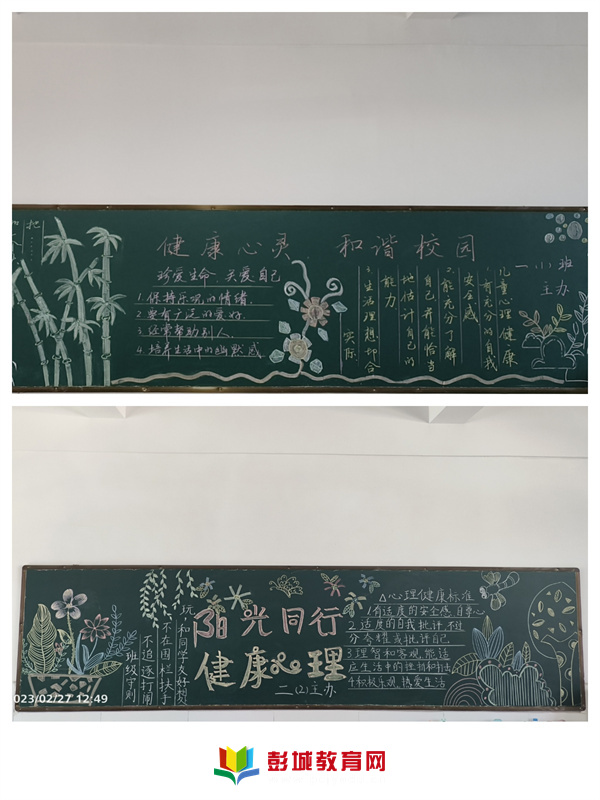 健康心灵 和谐校园
珍爱生命 关爱自己
1.保持乐观的情绪.
2.要有广泛的爱好.
3.经常帮助别人.
4.培养生活中的幽默感
儿童心理健康
1.有充分的自我
安全感
2.能充分了解
自己并能恰当
地估计自己的
能力
3.生活理想切合
实际
一(1)班
主办
阳光同行
健康心理
二(2)主办
玩
和同学友好
不在围栏扶手
不追逐打闹
班级守则
△心理健康标准
1.有适度的安全感,自尊心
2.适度的自我批评,不过
分夸耀或批评自己
3.理智和客观,能适
应生活中的
4.积极乐观,热爱生活
023/02/27 12:49
彭城教育网